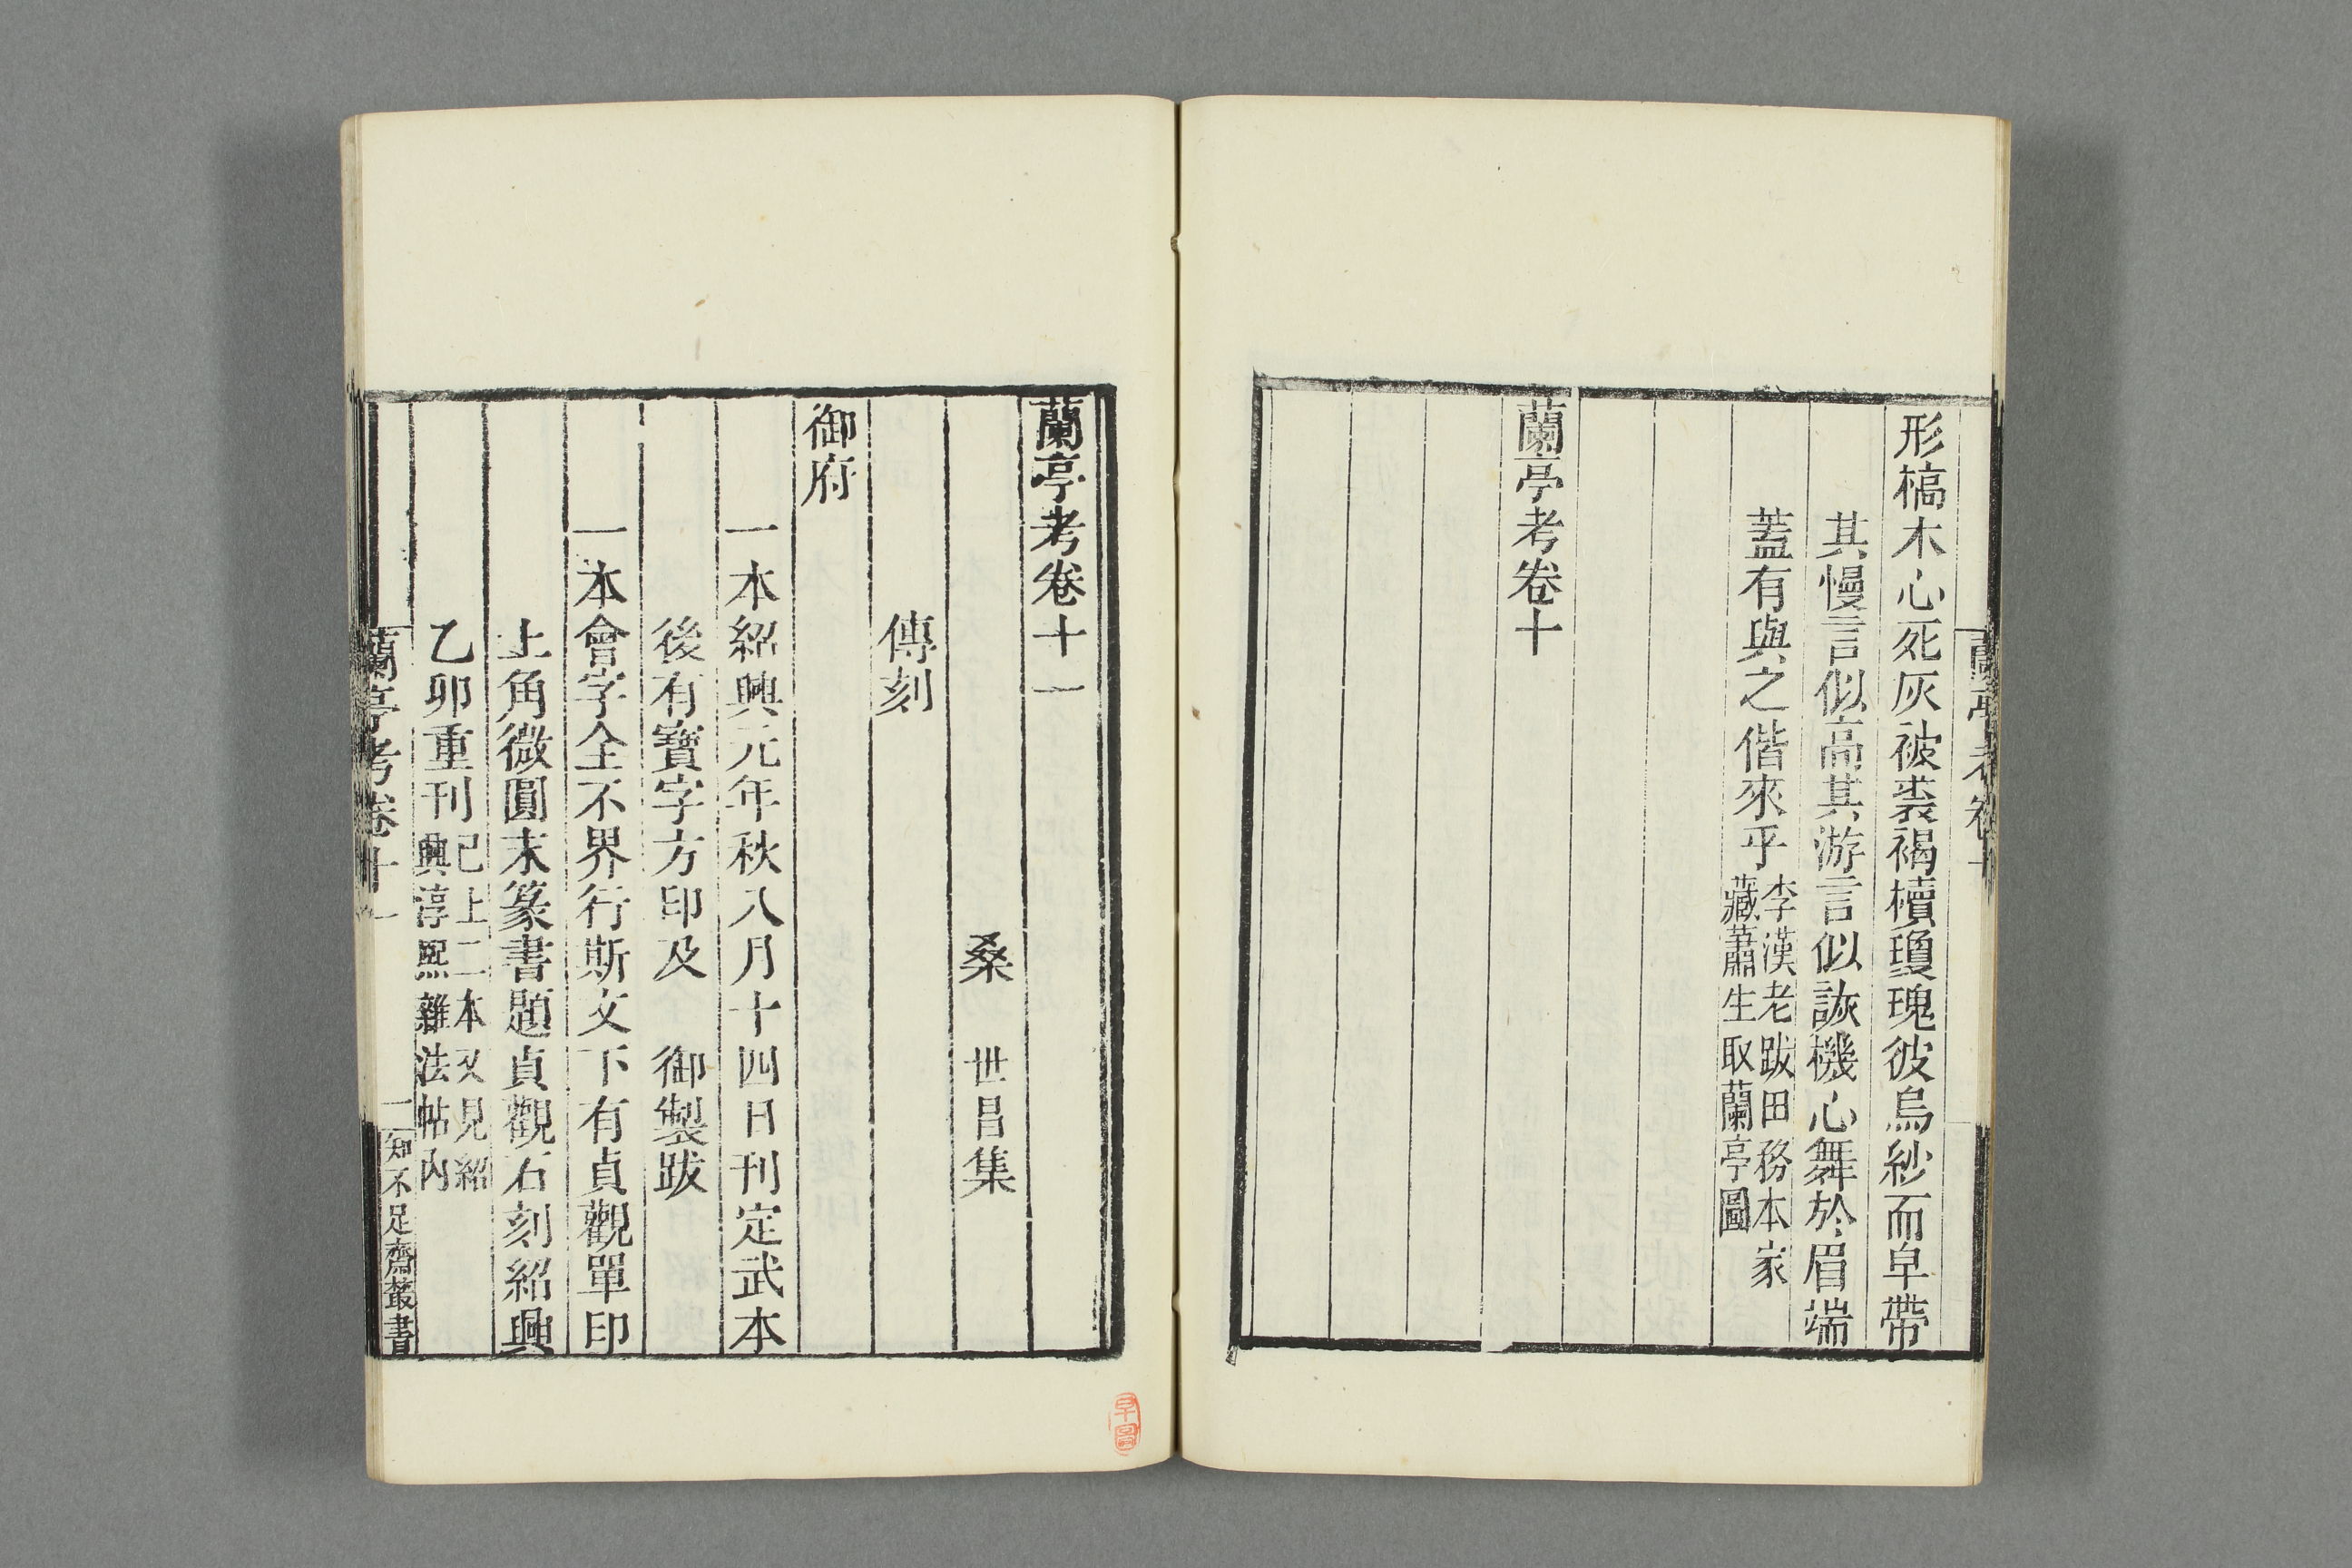 形槁木心死灰被裘褐櫝瓊瑰彼烏紗而皁帶
其慢言似高其游言似詼機心舞於眉端
蓋有與之偕來乎李漢老跋田務本家
藏蕭生取蘭亭圖
蘭亭考卷十
蘭亭考卷十一
桑 世昌集
傳刻
御府
一本紹興元年秋八月十四日刊定武本
後有寶字方印及 御製跋
一本會字全不界行斯文下有貞觀單印
上角微圓末篆書題貞觀石刻紹興
乙卯重刊已上二本又見紹
興淳熙雜法帖內
蘭亭考卷十一 一 知不足齋叢書